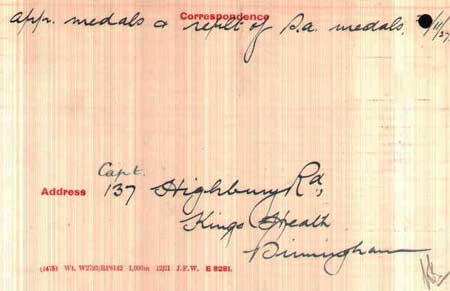 Correspondence
appn. medals & replt of S.A. medals.
Capt.
Address 137 Highbury Rd,
Kings Heath
Birmingham
(1475) Wt. W2793/RP6142 1,000m 12/21 J.F.W. E 8281.